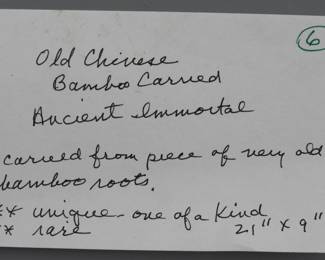 6
Old Chinese
Bamboo Carvied
Ancient Immortal
carvied from piece of very old
bamboo roots.
** unique - one of a Kind
** rare 21" x 9"